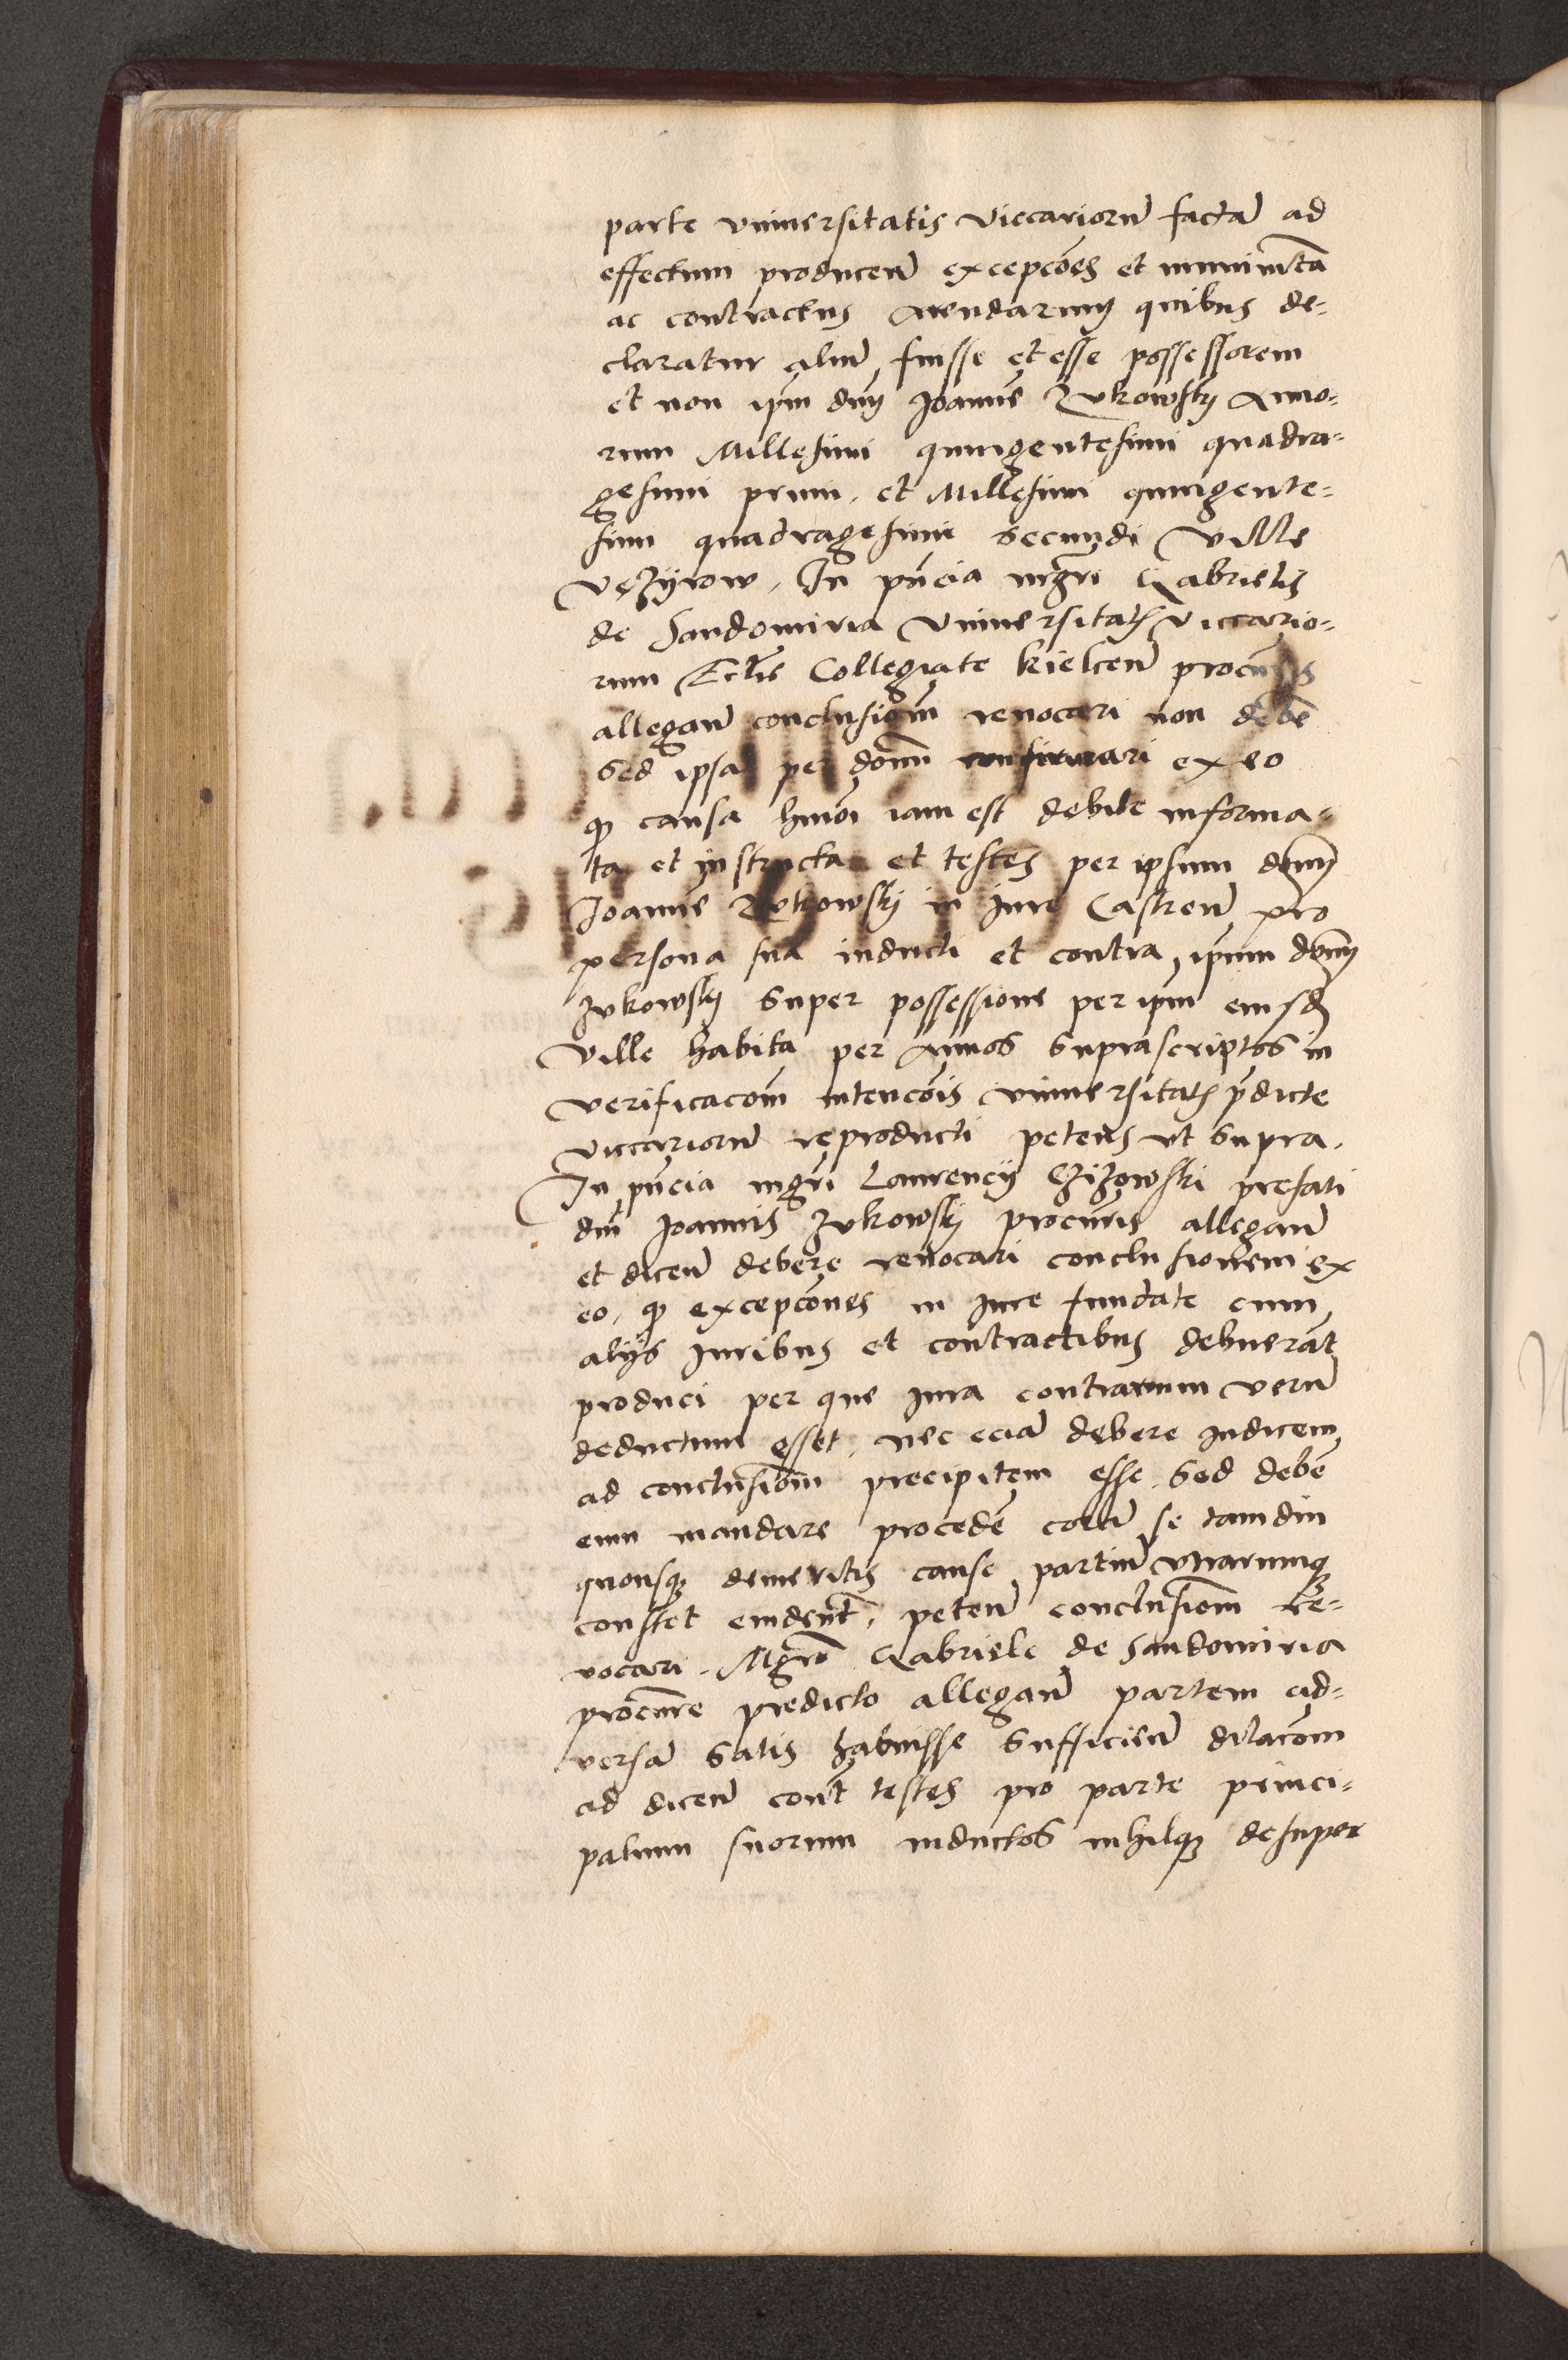 parte vniuersitatis viccariorū factā ad
effectum producen̄ excepcōes et munimēta
ac contractus arendarum quibus de-
claratur aliū fuisse et esse possessorem
et non ipm dnm Joannē Zvkowsky Anno-
rum Millesimi quingentesimi quadra-
gesimi primi et Millesimi quingente-
simi quadragesimi secundi ville
vęzÿrow. In pn̄cia mgr̄i Gabrielis
de Sandomiria vniuersitatꝭ viccario-
rum Eccl̄ie Collegiate kielcen̄ procur̄is
allegan̄ conclusiōm reuocari non debē
Sed ipsā per dom̄ confirmari ex eo
qꝫ causa hmōi iam est debite informa-
ta et instructa et testes per ipsum dom̄
Joannē Zvkowsky in iure Castren̄ pro
persona sua inducti et contra ipsum dom̄
Zvkowsky super possessione per ipm eiusdꝫ
ville habita per Annos suprascriptos in
verificacōm intencōis vniuersitatꝭ p̄dicte
viccariorū reproducti petens vt supra.
In pn̄cia mgr̄i Laurency Czizowski prefati
dn̄i Joannis Zvkowsky procur̄is allegan̄
et dicen̄ debere reuocari conclusionem ex
eo, qꝫ excepcōnes in iure fundate cum
alÿs iuribus et contractibus debuerāt
produci per que iura contrarium verū
deductum esset, nec eciā debere iudicem
ad conclusiōm precipitem esse, sed debē
eum mandare procedē cora se tamdiu
quousqꝫ de meritis cause partiū vtrarumqꝫ
constet euident̄, peten̄ conclusiōm re-
vocari. Mgr̄o Gabriele de Sandomiria
procur̄e predicto allegan̄ partem ad-
versā satis habuisse sufficien̄ dilacōm
ad dicen̄ cont̄ testes pro parte princi-
palium suorum inductos nihilqꝫ desuper